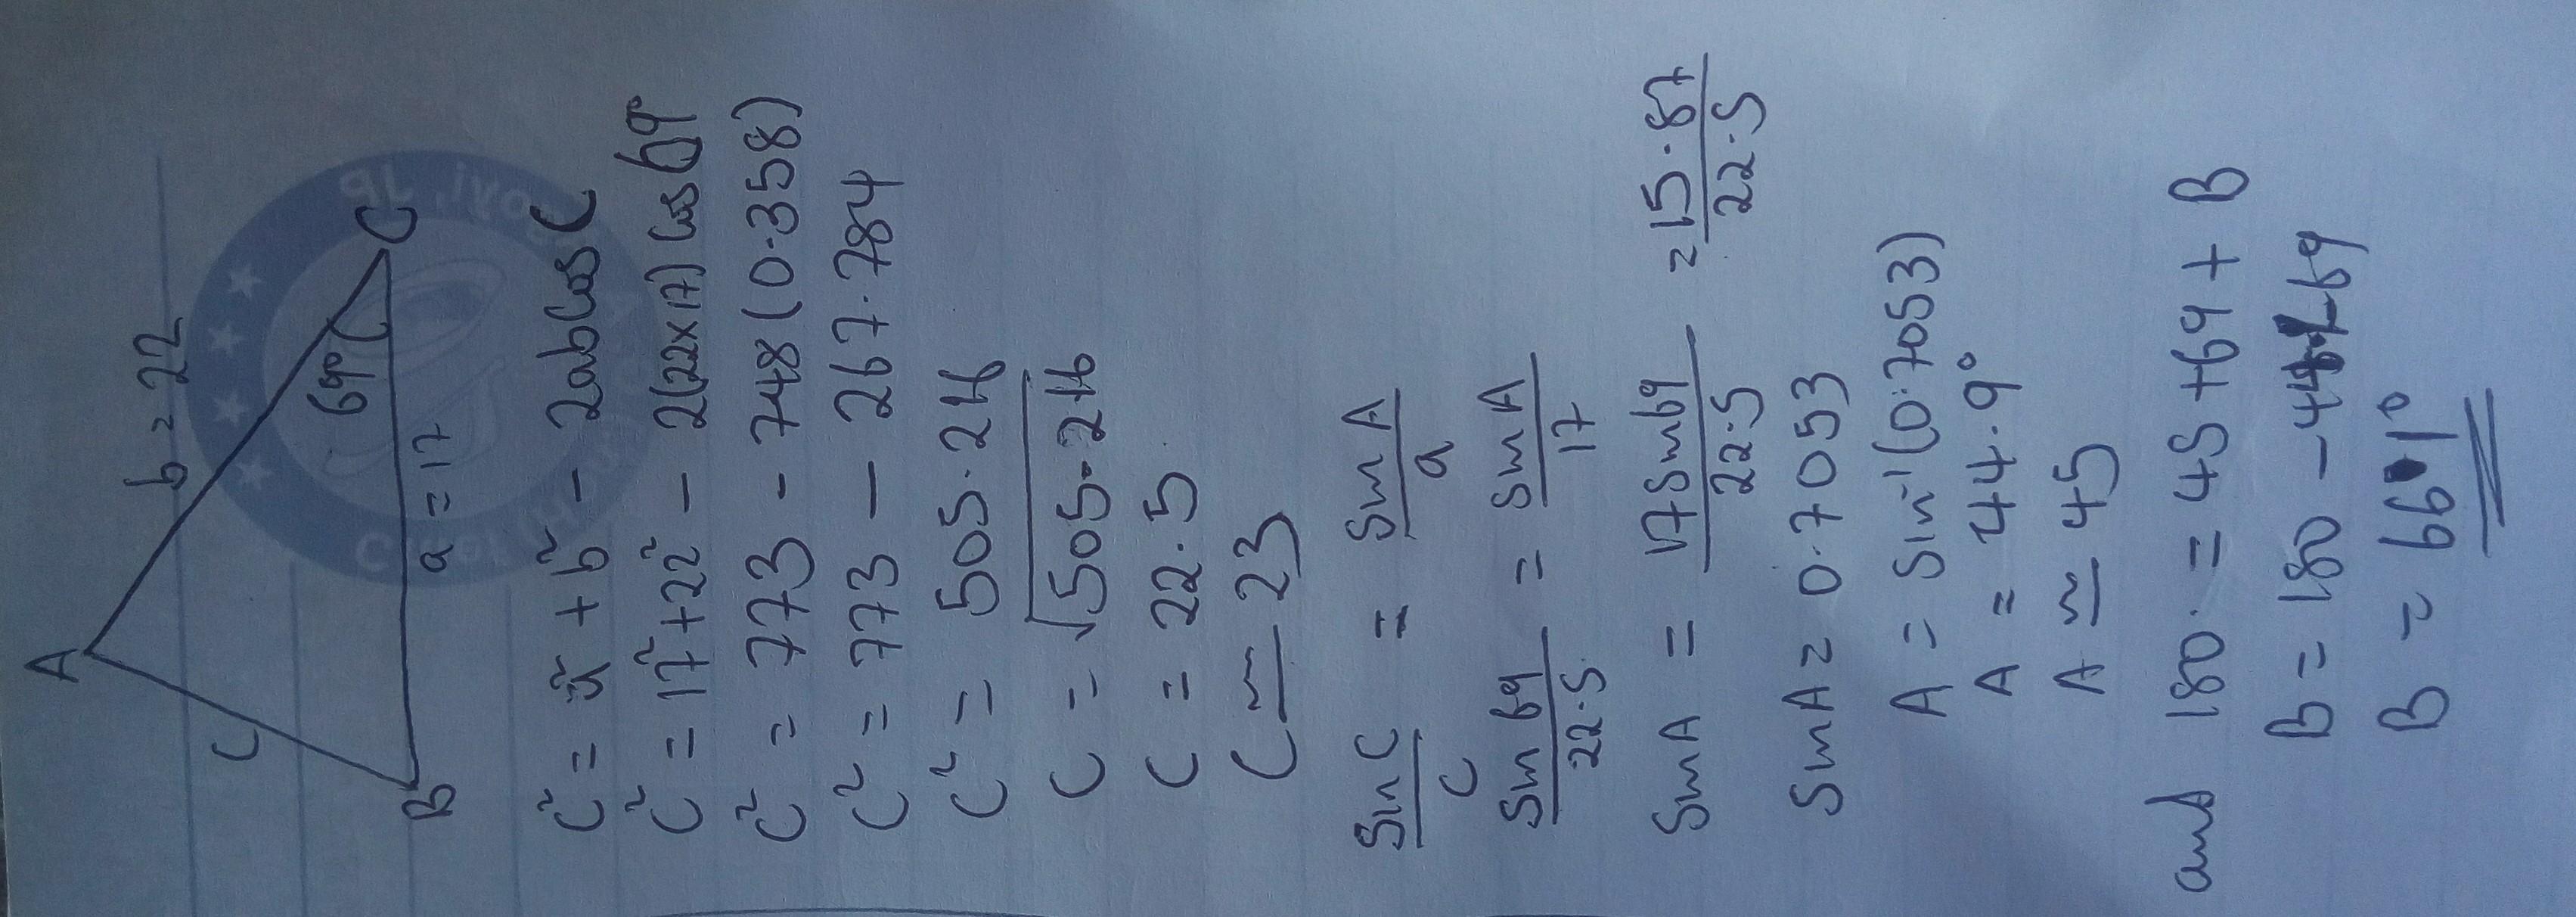 A
b = 22
C
69°
C
B
a = 17
C² = a² + b² - 2abCos C
C² = 17² + 22² - 2(22×17) Cos 69°
C² = 773 - 748 (0.358)
C² = 773 - 267.784
C² = 505.216
C = √505.216
C = 22.5
C ≃ 23
Sin C / C = Sin A / a
Sin 69 / 22.5 = Sin A / 17
Sin A = 17 Sin 69 / 22.5 = 15.87 / 22.5
Sin A = 0.7053
A = Sin⁻¹(0.7053)
A = 44.9°
A ≃ 45
and 180. = 45 + 69 + B
B = 180 - 44 - 69
B = 66.1°